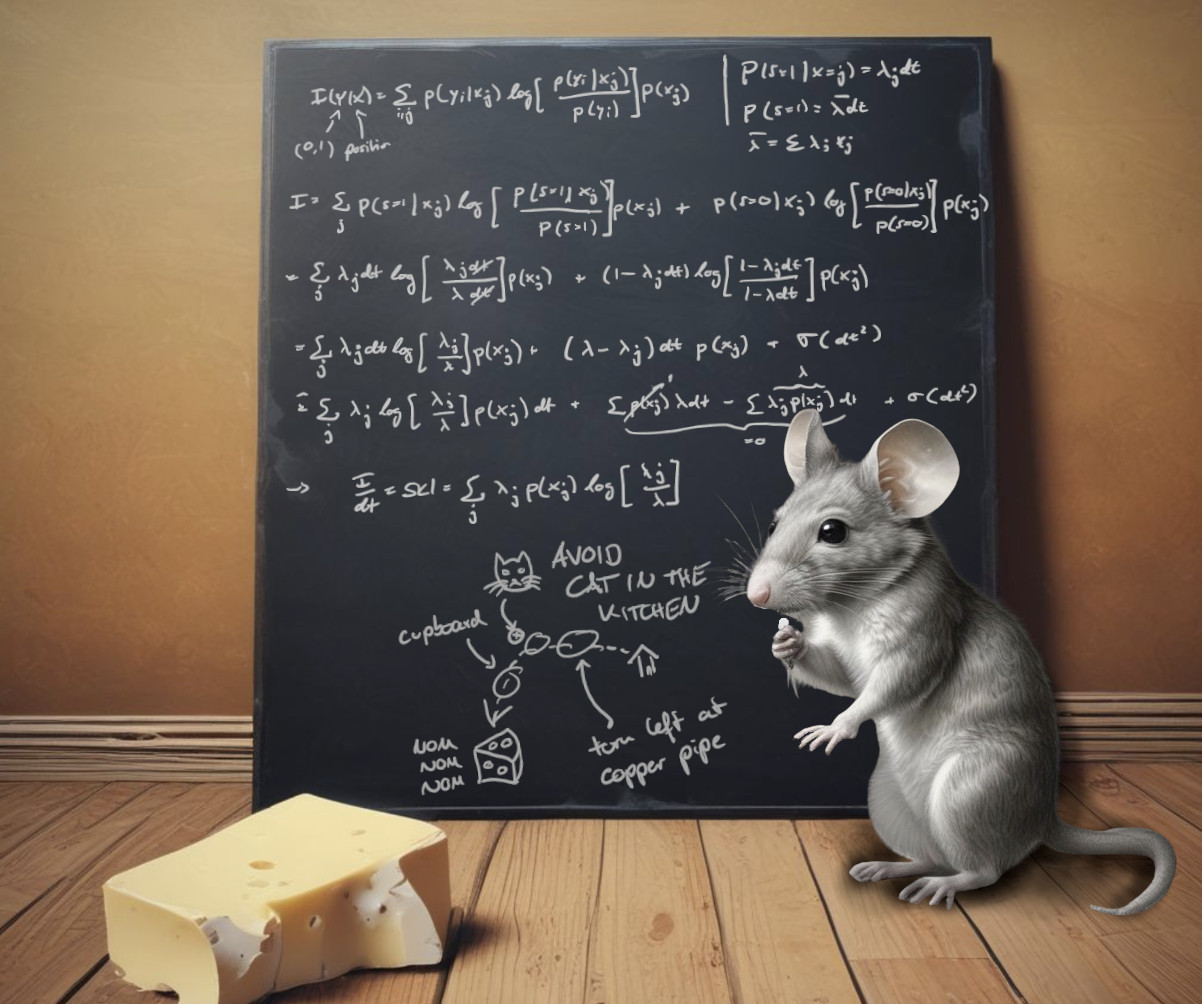 I(Y|X) = Σ_{i,j} p(y_i|x_j) log[ p(y_i|x_j) / p(y_i) ] p(x_j)
(0,1) position
P(s=1|x=j) = λ_j dt
P(s=1) = λ̄ dt
λ̄ = Σ λ_j x_j
I = Σ_j p(s=1|x_j) log[ p(s=1|x_j) / p(s=1) ] p(x_j) + p(s=0|x_j) log[ p(s=0|x_j) / p(s=0) ] p(x_j)
= Σ_j λ_j dt log[ λ_j dt / λ dt ] p(x_j) + (1-λ_j dt) log[ 1-λ_j dt / 1-λ dt ] p(x_j)
= Σ_j λ_j dt log[ λ_j / λ ] p(x_j) + (λ-λ_j) dt p(x_j) + σ(dt²)
= Σ_j λ_j log[ λ_j / λ ] p(x_j) dt + Σ p(x_j) λ dt - Σ λ_j p(x_j) dt + σ(dt²)
1
λ
=0
→ I/dt = SKI = Σ_j λ_j p(x_j) log[ λ_j / λ ]
AVOID
CAT IN THE
KITCHEN
cupboard
turn left at
copper pipe
NOM
NOM
NOM